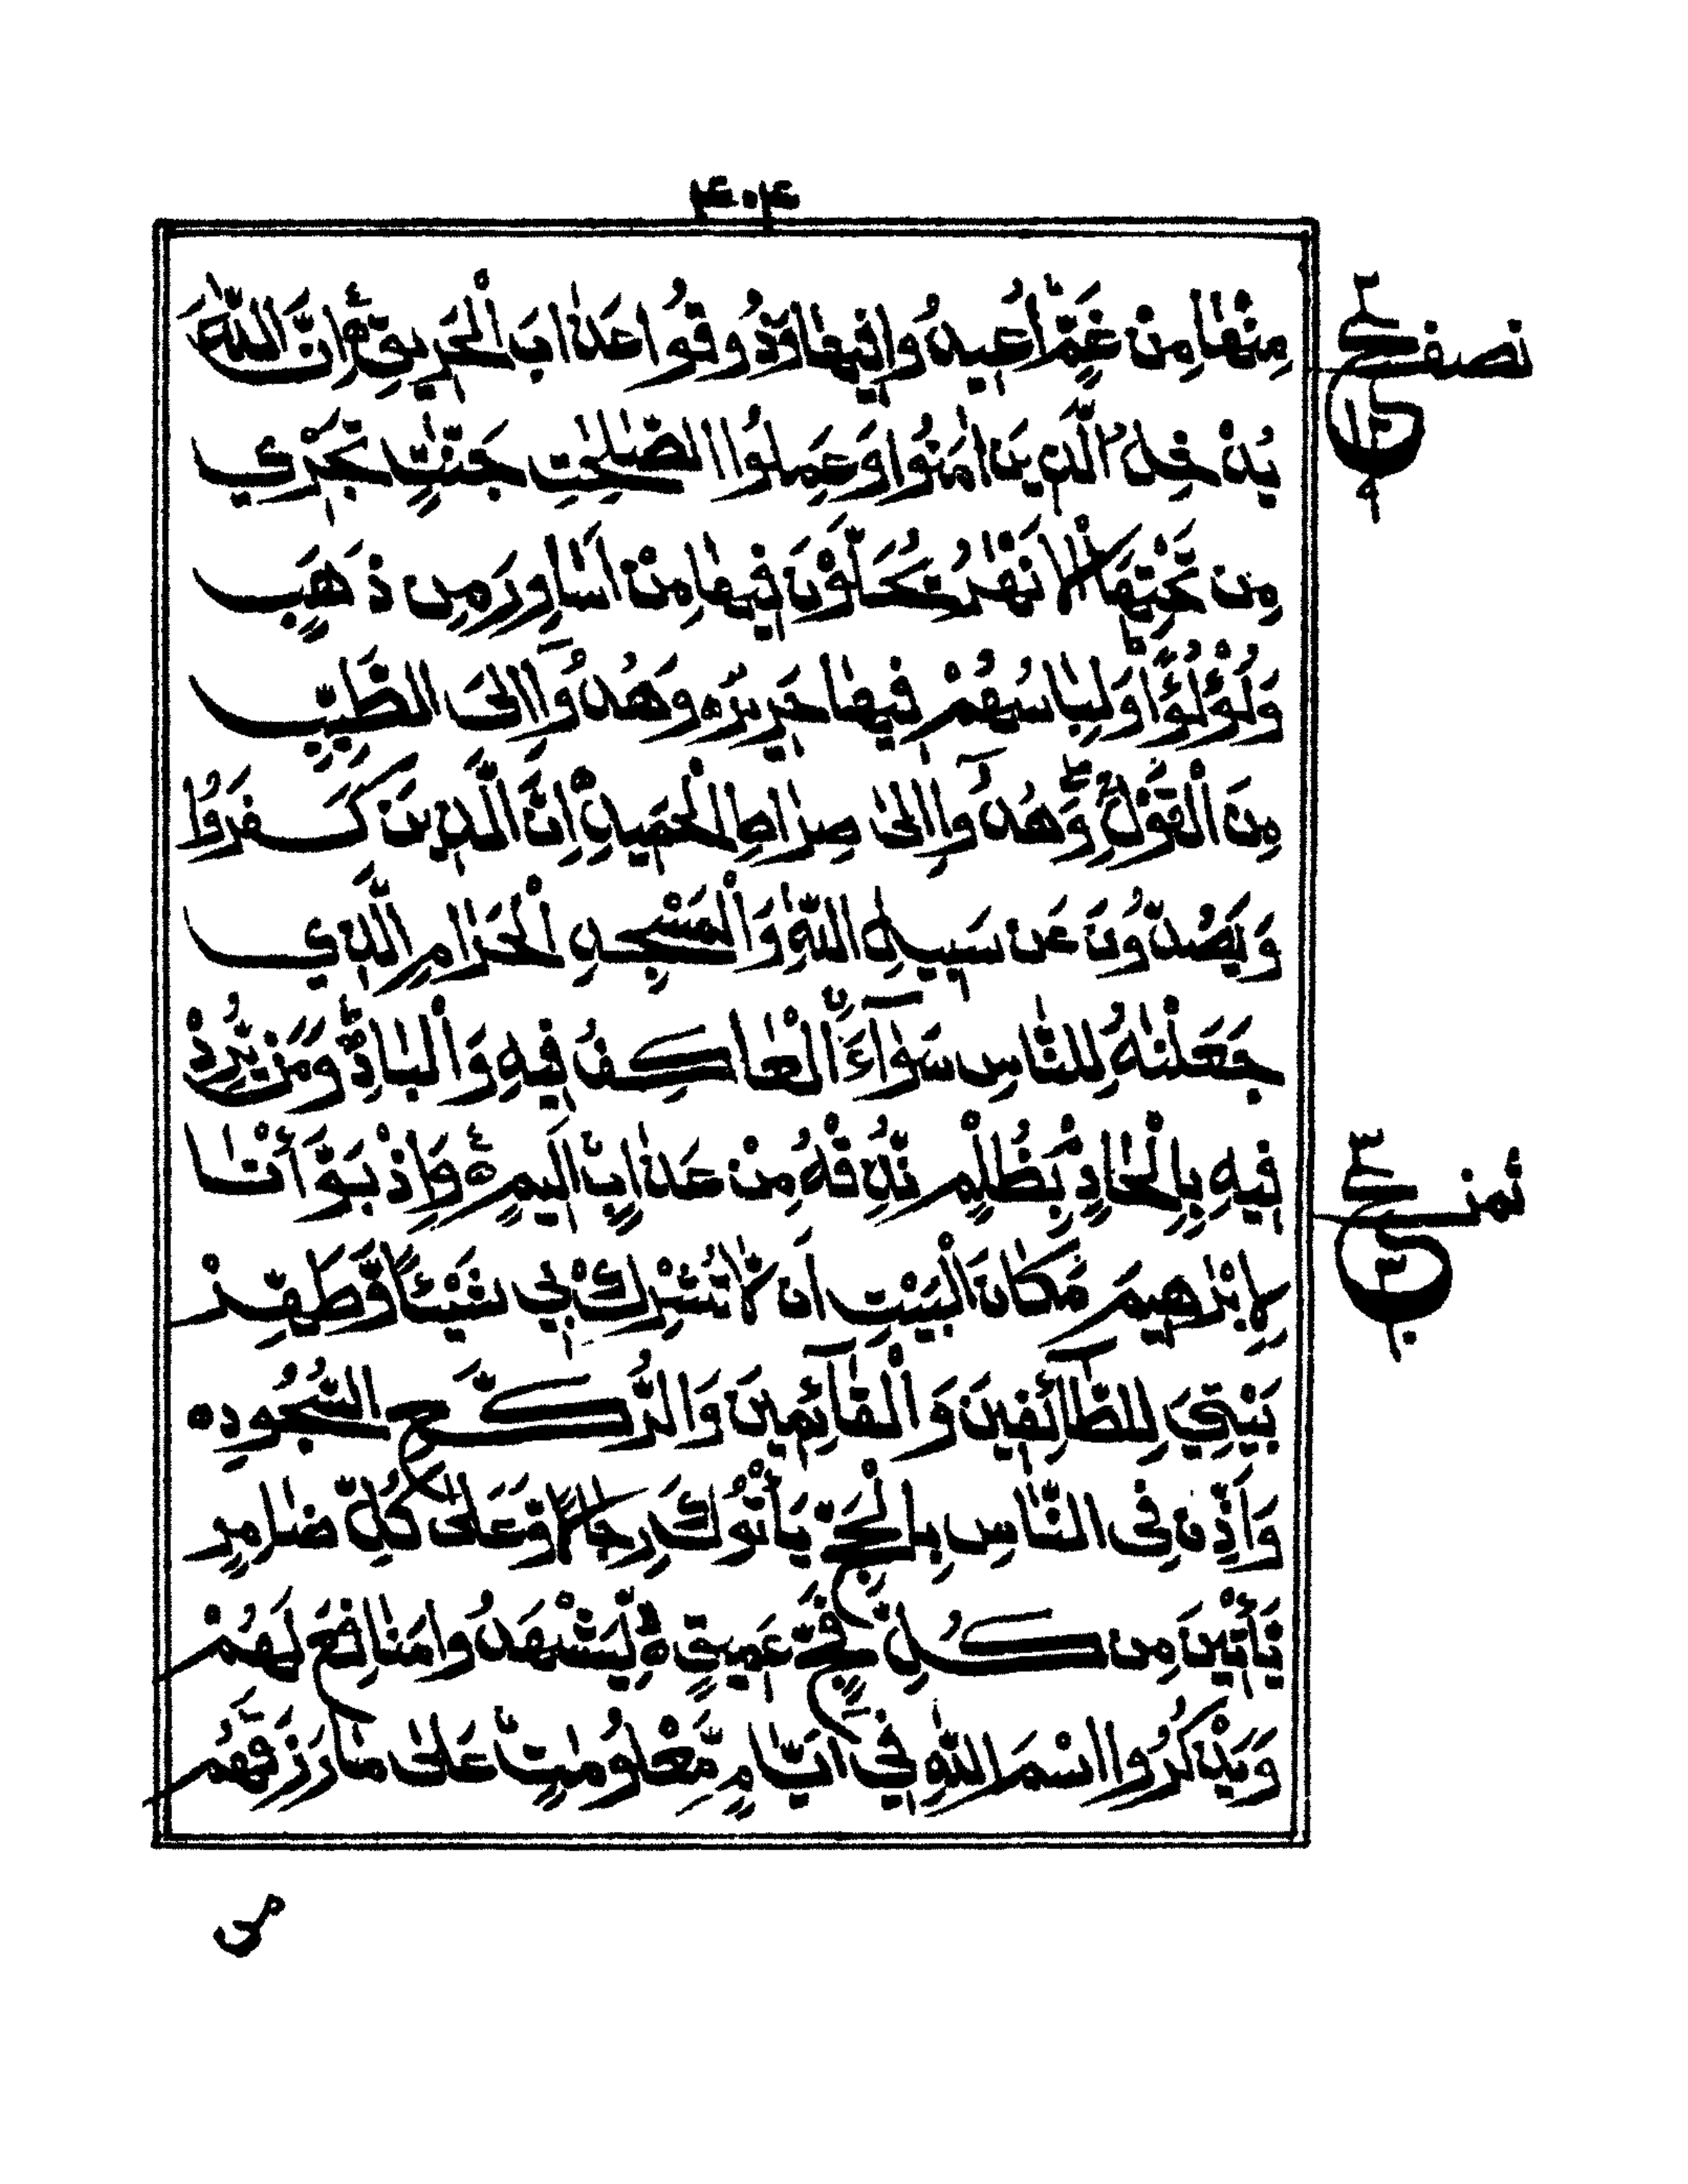 ٤٠٤
مِنْهَا مِنْ غَمٍّ أُعِيدُوا فِيهَا وَذُوقُوا عَذَابَ الْحَرِيقِ ۝ إِنَّ اللَّهَ
نصف
يُدْخِلُ الَّذِينَ اٰمَنُوا وَعَمِلُوا الصّٰلِحٰتِ جَنّٰتٍ تَجْرِي
مِن تَحْتِهَا الْأَنْهٰرُ يُحَلَّوْنَ فِيهَا مِنْ أَسَاوِرَ مِن ذَهَبٍ
وَلُؤْلُؤًا وَلِبَاسُهُمْ فِيهَا حَرِيرٌ ۝ وَهُدُوٓا إِلَى الطَّيِّبِ
مِنَ الْقَوْلِ وَهُدُوٓا إِلٰى صِرَاطِ الْحَمِيدِ ۝ إِنَّ الَّذِينَ كَفَرُوا
وَيَصُدُّونَ عَن سَبِيلِ اللَّهِ وَالْمَسْجِدِ الْحَرَامِ الَّذِي
جَعَلْنٰهُ لِلنَّاسِ سَوَآءَ ۨ الْعَاكِفُ فِيهِ وَالْبَادِ ۚ وَمَن يُّرِدْ
فِيهِ بِإِلْحَادٍ بِظُلْمٍ نُّذِقْهُ مِنْ عَذَابٍ أَلِيمٍ ۝ وَإِذْ بَوَّأْنَا
ثمن
لِإِبْرٰهِيمَ مَكَانَ الْبَيْتِ أَن لَّا تُشْرِكْ بِي شَيْئًا وَّطَهِّرْ
بَيْتِيَ لِلطَّآئِفِينَ وَالْقَآئِمِينَ وَالرُّكَّعِ السُّجُودِ ۝
وَأَذِّن فِي النَّاسِ بِالْحَجِّ يَأْتُوكَ رِجَالًا وَّعَلٰى كُلِّ ضَامِرٍ
يَّأْتِينَ مِن كُلِّ فَجٍّ عَمِيقٍ ۝ لِّيَشْهَدُوا مَنَافِعَ لَهُمْ
وَيَذْكُرُوا اسْمَ اللَّهِ فِي أَيَّامٍ مَّعْلُومٰتٍ عَلٰى مَا رَزَقَهُم
من